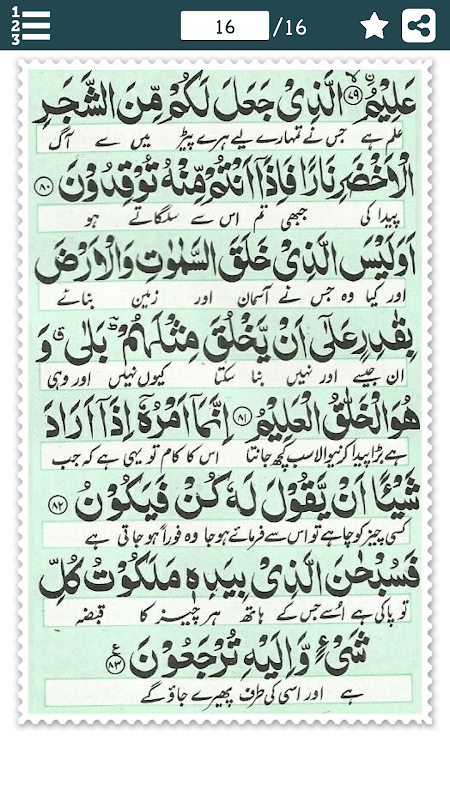 1 2 3
16 /16
عَلِیْمُۙ ﴿۷۹﴾ الَّذِیْ جَعَلَ لَكُمْ مِّنَ الشَّجَرِ
علم ہے جس نے تمہارے لیے ہرے پیڑ میں سے آگ
الْاَخْضَرِ نَارًا فَاِذَاۤ اَنْتُمْ مِّنْهُ تُوْقِدُوْنَ ﴿۸۰﴾
پیدا کی جبھی تم اس سے سلگاتے ہو
اَوَلَیْسَ الَّذِیْ خَلَقَ السَّمٰوٰتِ وَالْاَرْضَ
اور کیا وہ جس نے آسمان اور زمین بنائے
بِقٰدِرٍ عَلٰۤی اَنْ یَّخْلُقَ مِثْلَهُمْ ؕ بَلٰی ۗ وَ
ان جیسے اور نہیں بنا سکتا کیوں نہیں اور وہی
هُوَ الْخَلّٰقُ الْعَلِیْمُ ﴿۸۱﴾ اِنَّمَاۤ اَمْرُهٗۤ اِذَاۤ اَرَادَ
ہے بڑا پیدا کرنیوالا سب کچھ جانتا اس کا کام تو یہی ہے کہ جب
شَیْـًٔا اَنْ یَّقُوْلَ لَهٗ كُنْ فَیَكُوْنُ ﴿۸۲﴾
کسی چیز کو چاہے تو اس سے فرمائے ہوجا وہ فوراً ہو جاتی ہے
فَسُبْحٰنَ الَّذِیْ بِیَدِهٖ مَلَكُوْتُ كُلِّ
تو پاکی ہے اُسے جس کے ہاتھ ہر چیز کا قبضہ
شَیْءٍ وَّاِلَیْهِ تُرْجَعُوْنَ ﴿۸۳﴾ ع
ہے اور اسی کی طرف پھیرے جاؤ گے